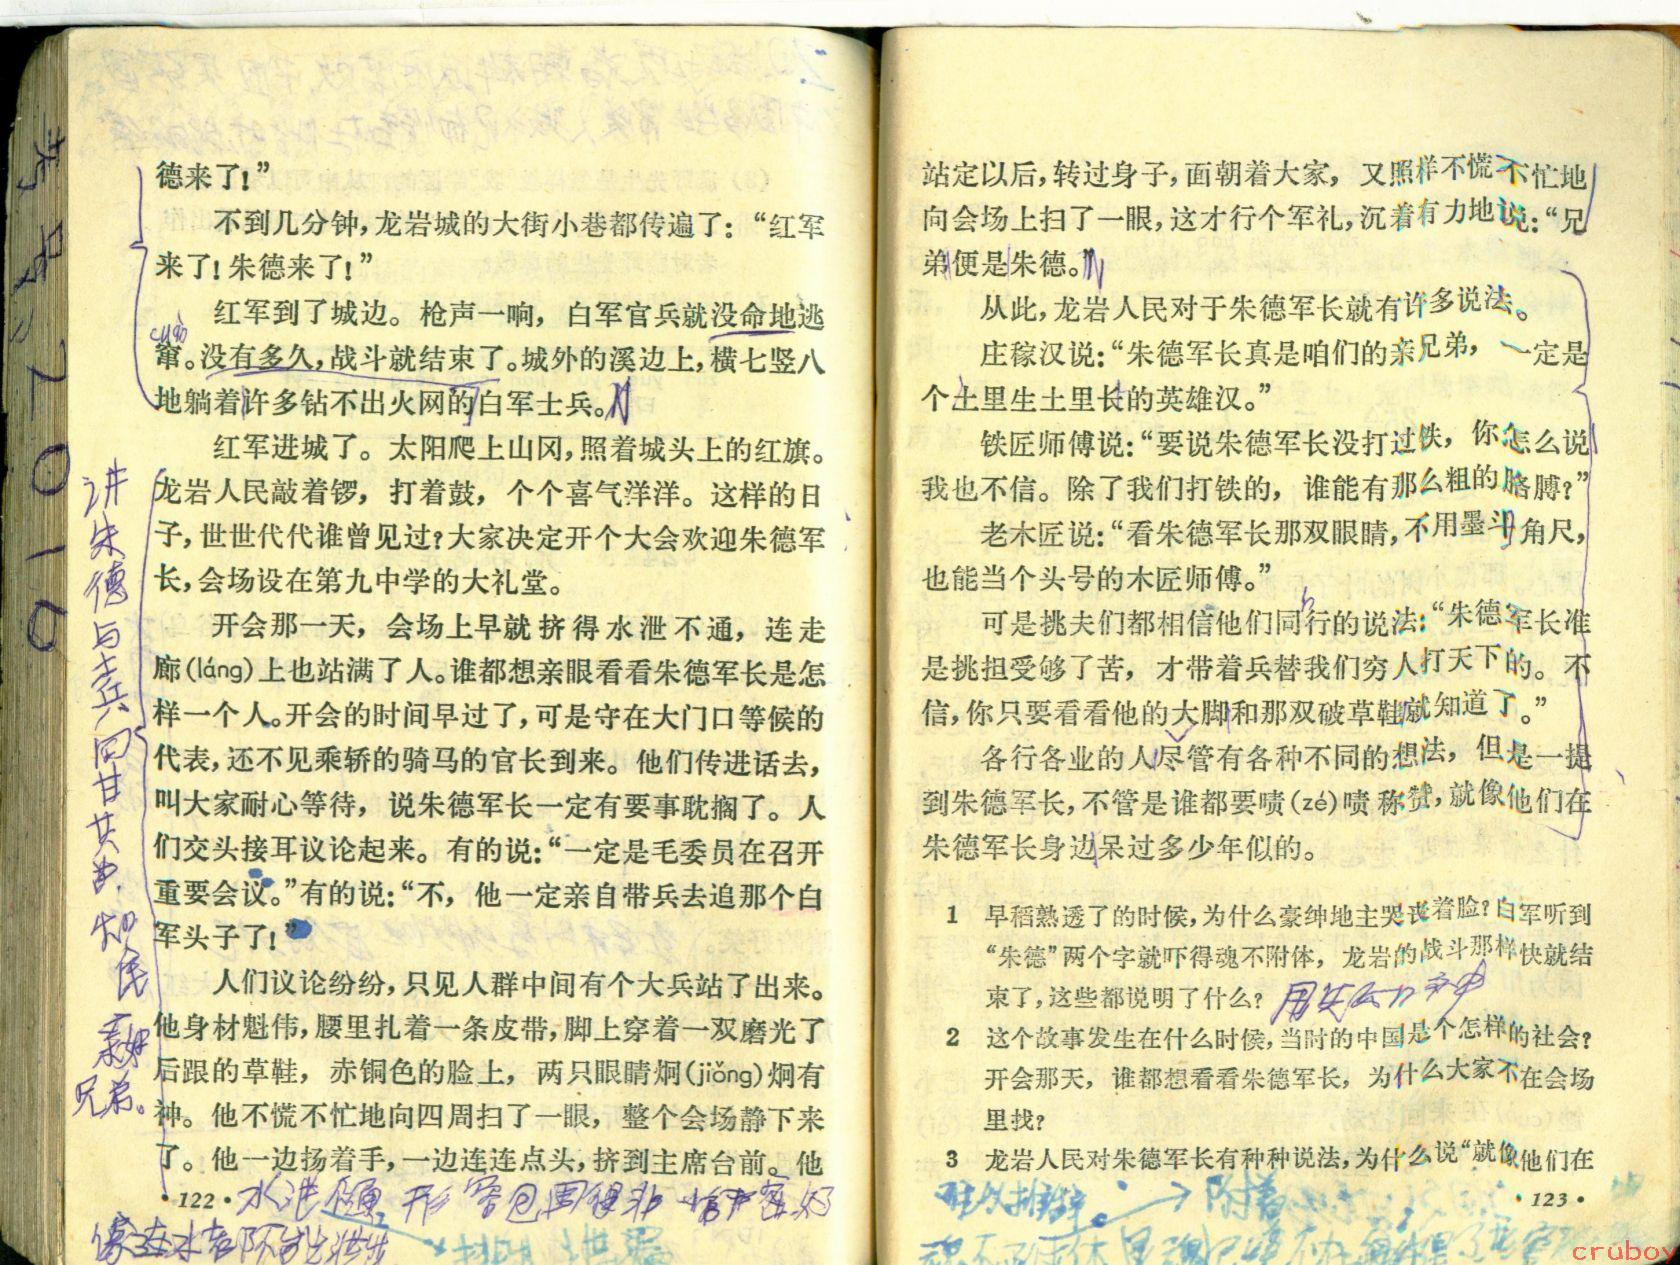 德来了!”
不到几分钟，龙岩城的大街小巷都传遍了：“红军
来了!朱德来了!”
红军到了城边。枪声一响，白军官兵就没命地逃
cuàn
窜。没有多久，战斗就结束了。城外的溪边上，横七竖八
地躺着许多钻不出火网的白军士兵。
红军进城了。太阳爬上山冈，照着城头上的红旗。
龙岩人民敲着锣，打着鼓，个个喜气洋洋。这样的日
子，世世代代谁曾见过?大家决定开个大会欢迎朱德军
长，会场设在第九中学的大礼堂。
开会那一天，会场上早就挤得水泄不通，连走
廊(láng)上也站满了人。谁都想亲眼看看朱德军长是怎
样一个人。开会的时间早过了，可是守在大门口等候的
代表，还不见乘轿的骑马的官长到来。他们传进话去，
叫大家耐心等待，说朱德军长一定有要事耽搁了。人
们交头接耳议论起来。有的说：“一定是毛委员在召开
重要会议。”有的说：“不，他一定亲自带兵去追那个白
军头子了!”
人们议论纷纷，只见人群中间有个大兵站了出来。
他身材魁伟，腰里扎着一条皮带，脚上穿着一双磨光了
后跟的草鞋，赤铜色的脸上，两只眼睛炯(jiǒng)炯有
神。他不慌不忙地向四周扫了一眼，整个会场静下来
了。他一边扬着手，一边连连点头，挤到主席台前。他
·122·
讲朱德与士兵同甘共苦，
亲如
兄弟。
站定以后，转过身子，面朝着大家，又照样不慌不忙地
向会场上扫了一眼，这才行个军礼，沉着有力地说：“兄
弟便是朱德。”
从此，龙岩人民对于朱德军长就有许多说法。
庄稼汉说：“朱德军长真是咱们的亲兄弟，一定是
个土里生土里长的英雄汉。”
铁匠师傅说：“要说朱德军长没打过铁，你怎么说
我也不信。除了我们打铁的，谁能有那么粗的胳膊?”
老木匠说：“看朱德军长那双眼睛，不用墨斗角尺，
也能当个头号的木匠师傅。”
可是挑夫们都相信他们同行的说法：“朱德军长准
是挑担受够了苦，才带着兵替我们穷人打天下的。不
信，你只要看看他的大脚和那双破草鞋就知道了。”
各行各业的人尽管有各种不同的想法，但是一提
到朱德军长，不管是谁都要啧(zé)啧称赞，就像他们在
朱德军长身边呆过多少年似的。
1 早稻熟透了的时候，为什么豪绅地主哭丧着脸?白军听到
“朱德”两个字就吓得魂不附体，龙岩的战斗那样快就结
束了，这些都说明了什么?
2 这个故事发生在什么时候，当时的中国是个怎样的社会?
开会那天，谁都想看看朱德军长，为什么大家不在会场
里找?
3 龙岩人民对朱德军长有种种说法，为什么说“就像他们在
附着
·123·
cruboy